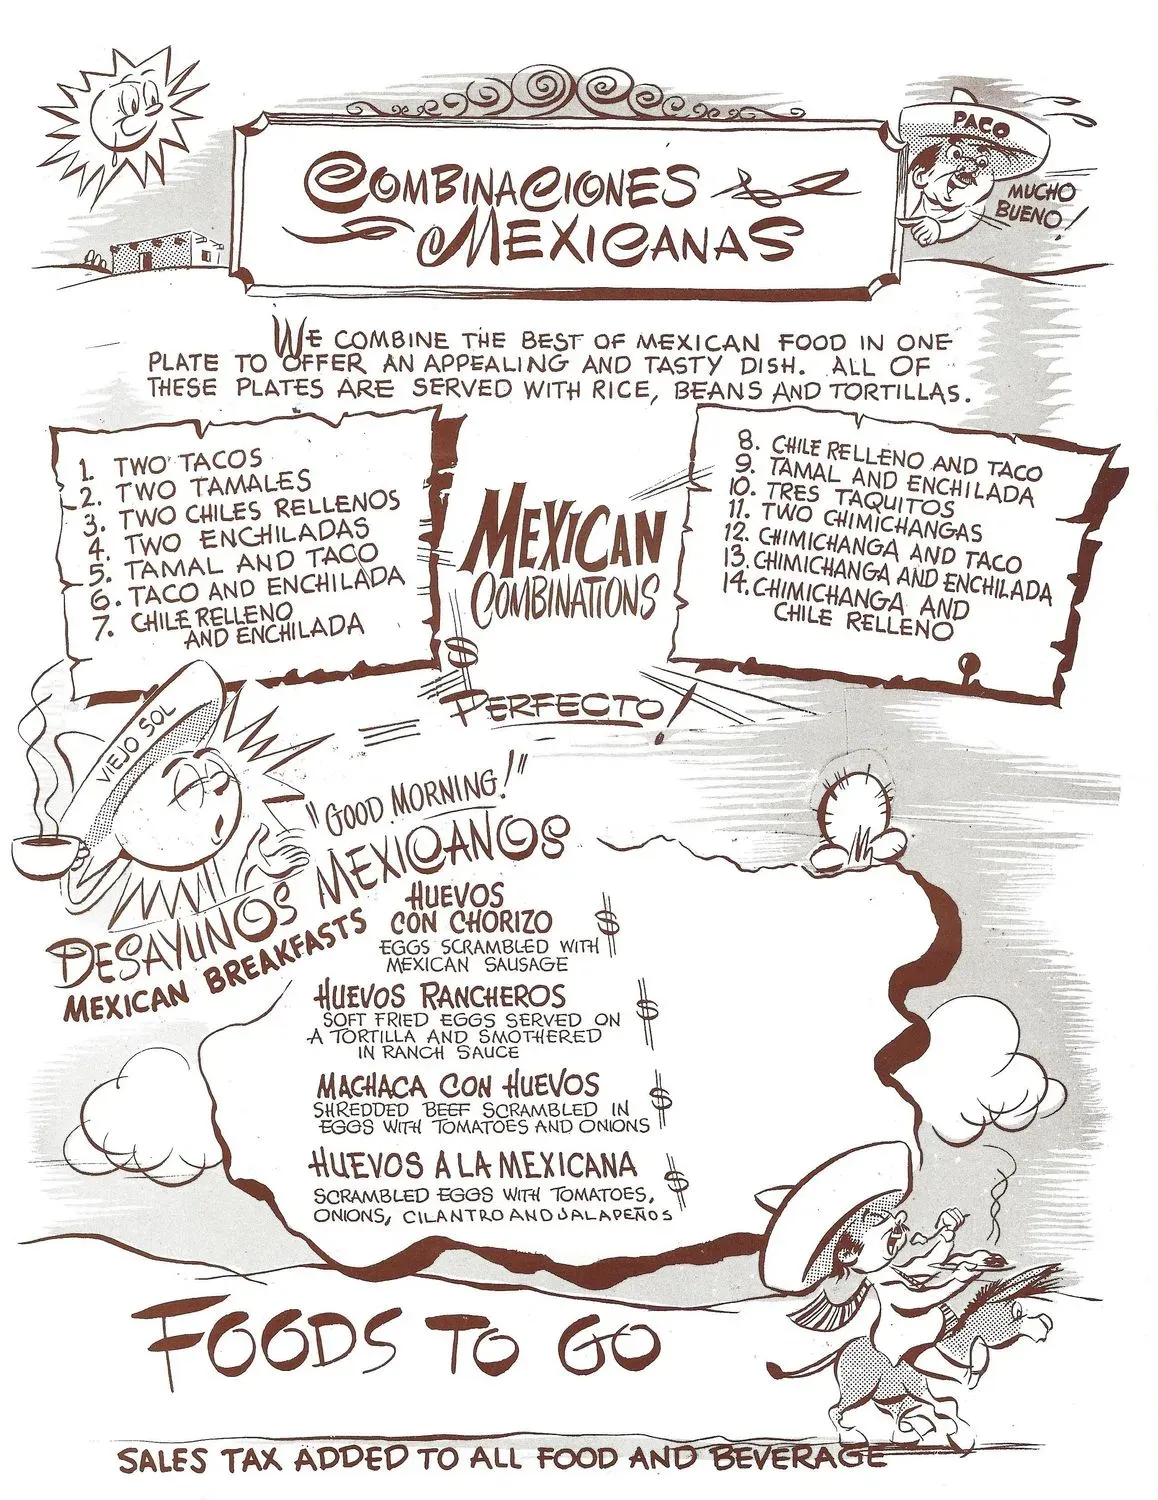 COMBINACIONES
MEXICANAS
PACO
MUCHO
BUENO!
WE COMBINE THE BEST OF MEXICAN FOOD IN ONE
PLATE TO OFFER AN APPEALING AND TASTY DISH. ALL OF
THESE PLATES ARE SERVED WITH RICE, BEANS AND TORTILLAS.
1. TWO TACOS
2. TWO TAMALES
3. TWO CHILES RELLENOS
4. TWO ENCHILADAS
5. TAMAL AND TACO
6. TACO AND ENCHILADA
7. CHILE RELLENO
AND ENCHILADA
MEXICAN
COMBINATIONS
$
PERFECTO!
8. CHILE RELLENO AND TACO
9. TAMAL AND ENCHILADA
10. TRES TAQUITOS
11. TWO CHIMICHANGAS
12. CHIMICHANGA AND TACO
13. CHIMICHANGA AND ENCHILADA
14. CHIMICHANGA AND
CHILE RELLENO
VIEJO SOL
"GOOD MORNING!"
DESAYUNOS MEXICANOS
MEXICAN BREAKFASTS
HUEVOS
CON CHORIZO $
EGGS SCRAMBLED WITH
MEXICAN SAUSAGE
HUEVOS RANCHEROS $
SOFT FRIED EGGS SERVED ON
A TORTILLA AND SMOTHERED
IN RANCH SAUCE
MACHACA CON HUEVOS $
SHREDDED BEEF SCRAMBLED IN
EGGS WITH TOMATOES AND ONIONS
HUEVOS A LA MEXICANA $
SCRAMBLED EGGS WITH TOMATOES,
ONIONS, CILANTRO AND JALAPEÑOS
FOODS TO GO
SALES TAX ADDED TO ALL FOOD AND BEVERAGE